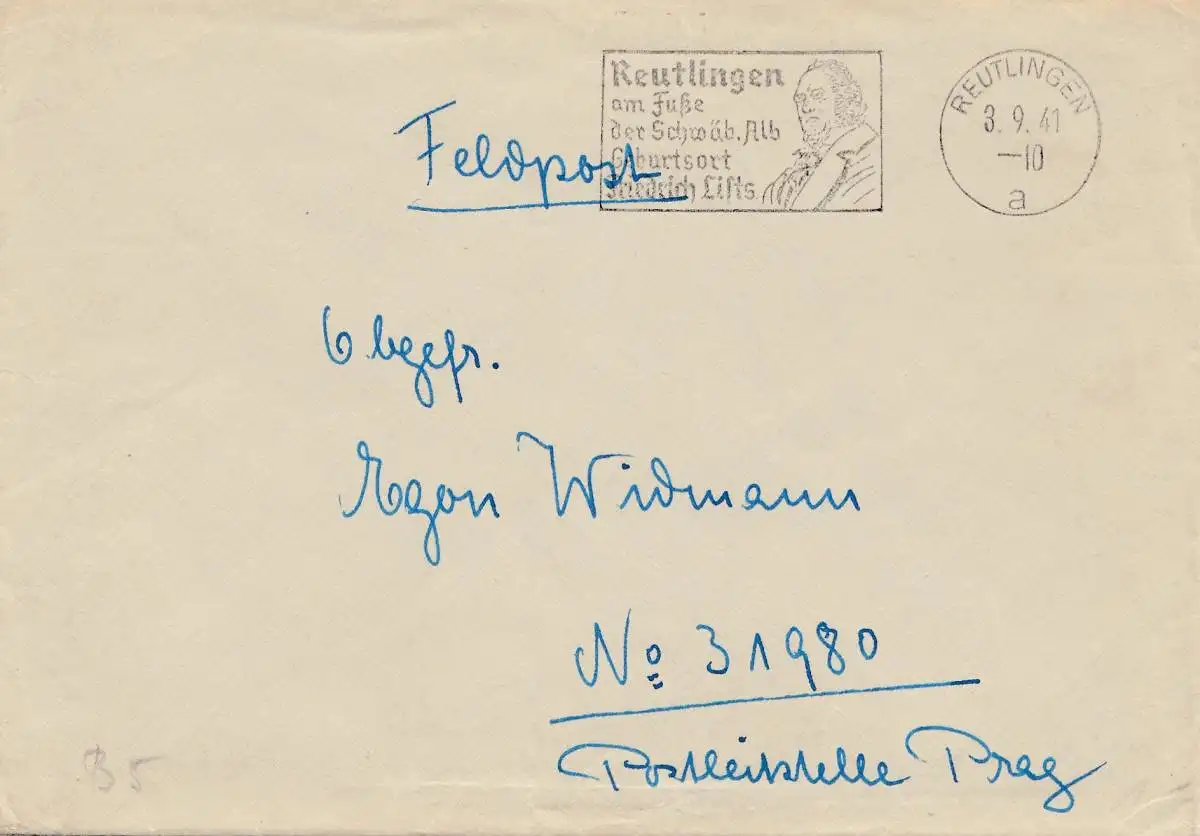 Reutlingen
am Fuße
der Schwäb. Alb
Geburtsort
Friedrich Lists
REUTLINGEN
3.9.41
-10
a
Feldpost
Obgefr.
Egon Widmann
No 31980
Postleitstelle Prag
B5